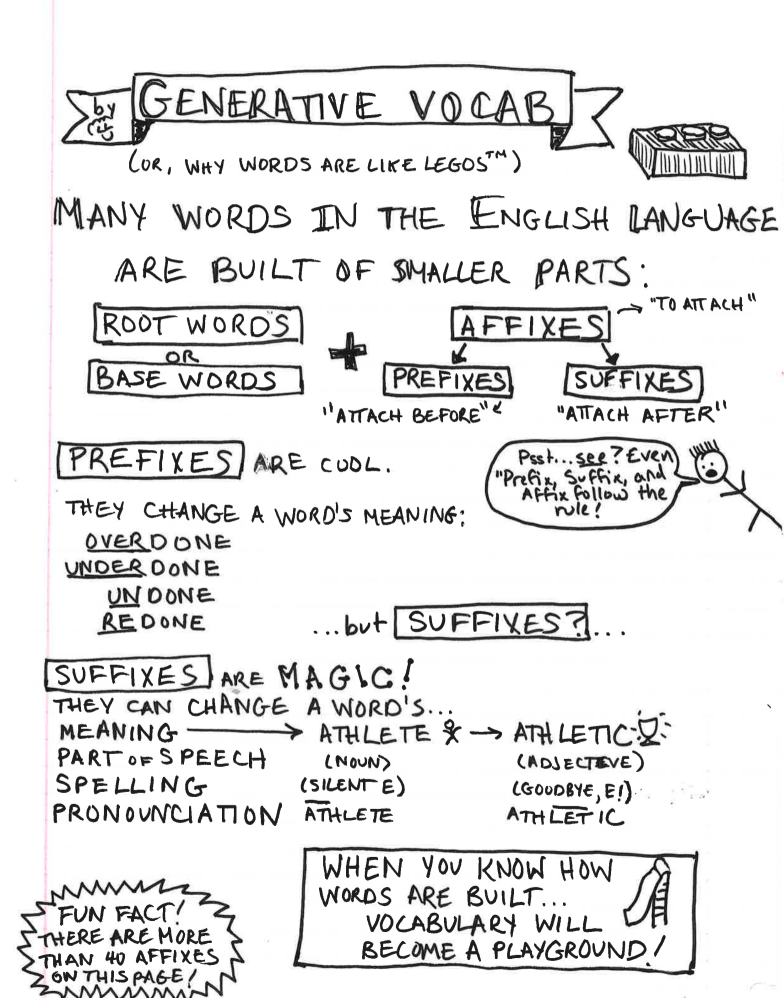 by
GENERATIVE VOCAB
(OR, WHY WORDS ARE LIKE LEGOS™)
MANY WORDS IN THE ENGLISH LANGUAGE
ARE BUILT OF SMALLER PARTS:
ROOT WORDS
OR
BASE WORDS
+
AFFIXES → "TO ATTACH"
PREFIXES
SUFFIXES
"ATTACH BEFORE"
"ATTACH AFTER"
PREFIXES ARE COOL.
Psst...see? Even
"Prefix, Suffix, and
Affix follow the
rule!
THEY CHANGE A WORD'S MEANING:
OVERDONE
UNDERDONE
UNDONE
REDONE
...but SUFFIXES?...
SUFFIXES ARE MAGIC!
THEY CAN CHANGE A WORD'S...
MEANING → ATHLETE → ATHLETIC
PART OF SPEECH (NOUN) (ADJECTIVE)
SPELLING (SILENT E) (GOODBYE, E!)
PRONOUNCIATION ATHLETE ATHLETIC
WHEN YOU KNOW HOW
WORDS ARE BUILT...
VOCABULARY WILL
BECOME A PLAYGROUND!
FUN FACT!
THERE ARE MORE
THAN 40 AFFIXES
ON THIS PAGE!